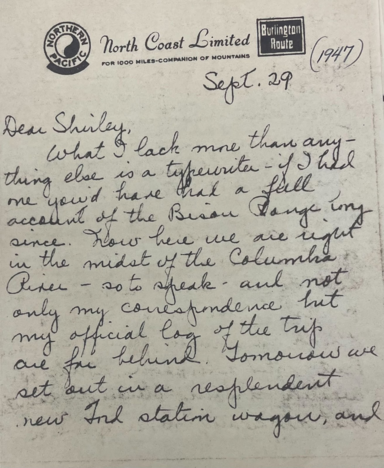 NORTHERN PACIFIC
North Coast Limited
FOR 1000 MILES-COMPANION OF MOUNTAINS
Burlington Route
(1947)
Sept. 29
Dear Shirley,
What I lack more than any-
thing else is a typewriter - if I had
one you'd have had a full
account of the Bison Range long
since. Now here we are right
in the midst of the Columbia
River - so to speak - and not
only my correspondence but
my official log of the trip
are far behind. Tomorrow we
set out in a resplendent
new Ford station wagon, and